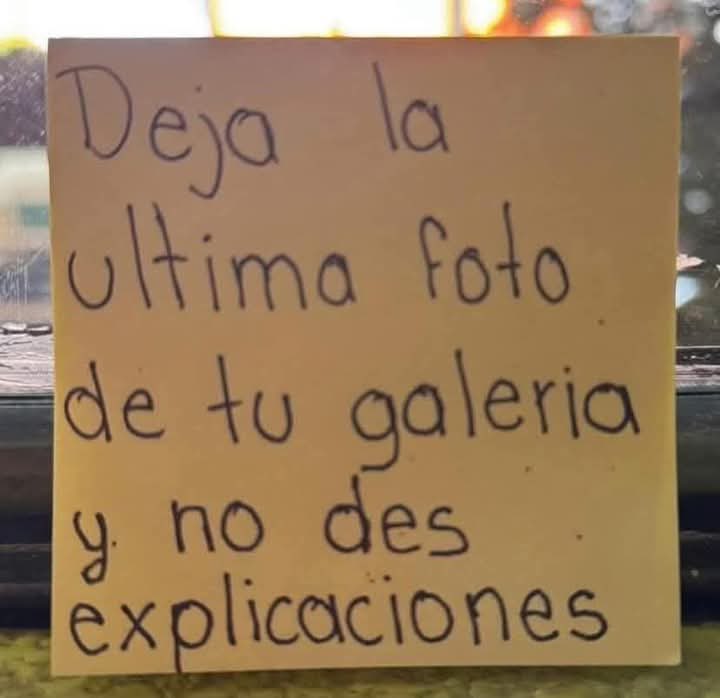 Deja la
ultima foto
de tu galeria
y no des
explicaciones